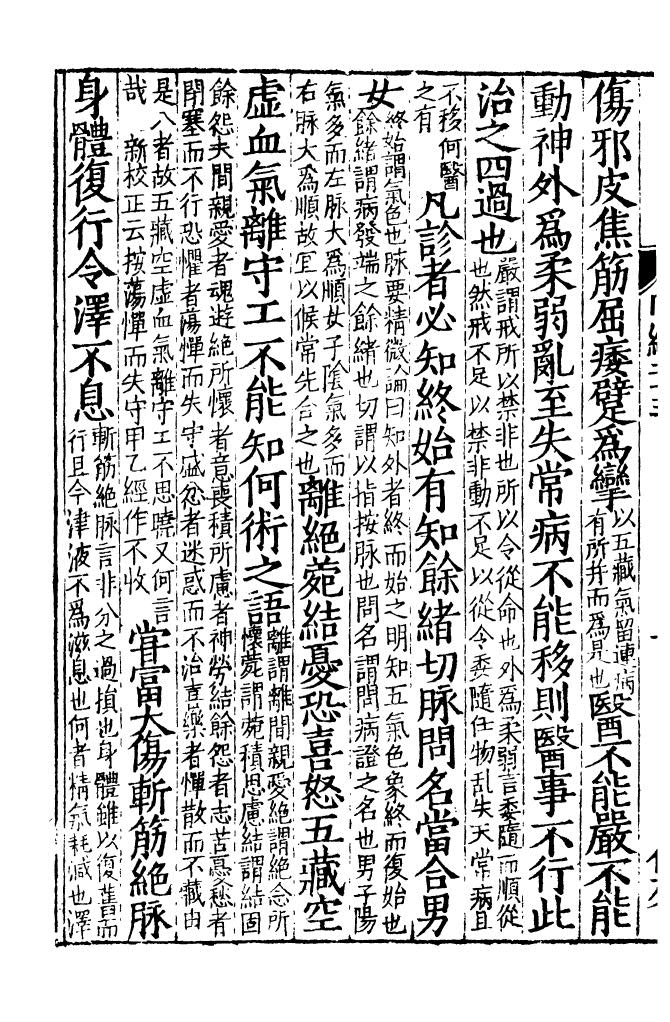 傷邪皮焦筋屈痿躄爲攣以五藏氣留連病有所并而爲是也醫不能嚴不能
動神外爲柔弱亂至失常病不能移則醫事不行此
治之四過也嚴謂戒所以禁非也所以令從命也外爲柔弱言委隨而順從也然戒不足以禁非動不足以從令委隨任物乱失天常病且
不移何醫之有凡診者必知終始有知餘緒切脉問名當合男
女終始謂氣色也脉要精微論曰知外者終而始之明知五氣色象終而復始也餘緒謂病發端之餘緒也切謂以指按脉也問名謂問病證之名也男子陽
氣多而左脉大爲順女子陰氣多而右脉大爲順故宜以候常先合之也離絕菀結憂恐喜怒五藏空
虛血氣離守工不能知何術之語離謂離間親愛絕謂絕念所懷菀謂菀積思慮結謂結固
餘怨夫間親愛者魂遊絕所懷者意喪積所慮者神勞結餘怨者志苦憂愁者閉塞而不行恐懼者蕩憚而失守盛忿者迷惑而不治喜樂者憚散而不藏由
是八者故五藏空虛血氣離守工不思曉又何言哉 新校正云按蕩憚而失守甲乙經作不收嘗富大傷斬筋絕脉
身體復行令澤不息斬筋絕脉言非分之過損也身體雖以復舊而行且令津液不爲滋息也何者精氣耗減也澤